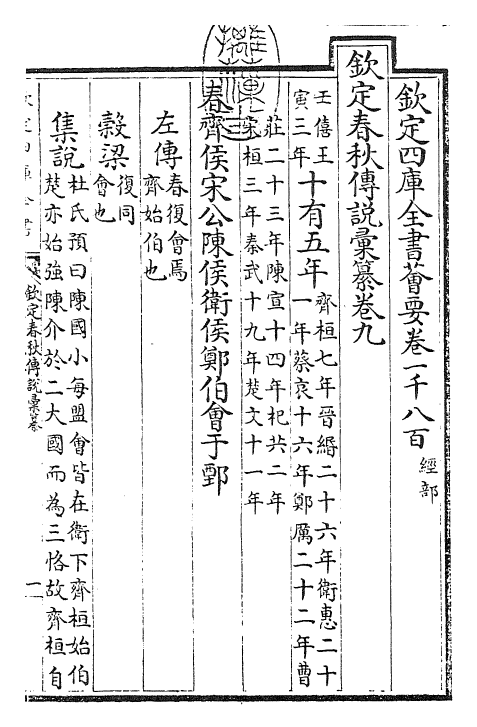 欽定四庫全書薈要卷一千八百 經部
欽定春秋傳說彙纂卷九
壬僖王
寅三年
十有五年
齊桓七年晉緡二十六年衛惠二十
一年蔡哀十六年鄭厲二十二年曹
莊二十三年陳宣十四年杞共二年
宋桓三年秦武十九年楚文十一年
春齊侯宋公陳侯衛侯鄭伯會于鄄
左傳
春復會焉
齊始伯也
榖梁
復同
會也
集說
杜氏預曰陳國小每盟會皆在衛下齊桓始伯
楚亦始強陳介於二大國而為三恪故齊桓自
欽定春秋傳說彙纂
一